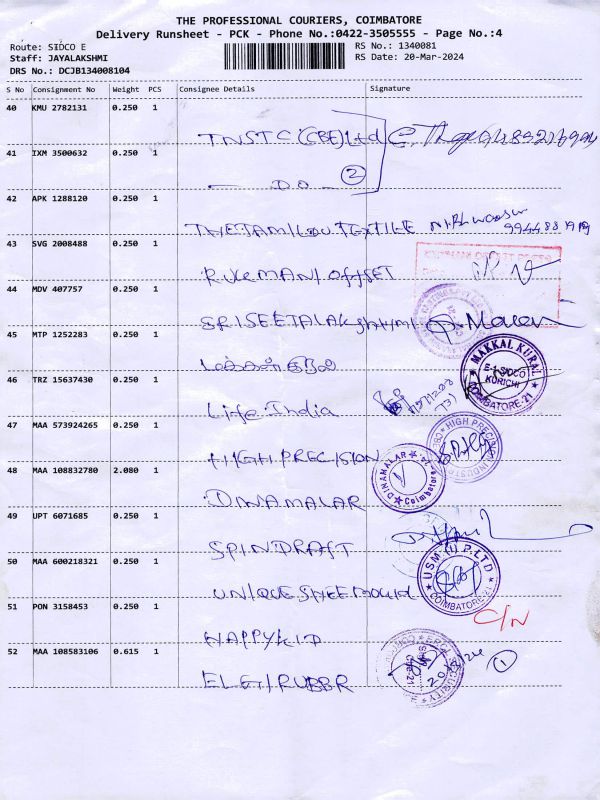 THE PROFESSIONAL COURIERS, COIMBATORE
Delivery Runsheet - PCK - Phone No.:0422-3505555 - Page No.:4
Route: SIDCO E RS No.: 1340081
Staff: JAYALAKSHMI RS Date: 20-Mar-2024
DRS No.: DCJB134008104
S No Consignment No Weight PCS Consignee Details Signature
40 KMU 2782131 0.250 1
TNSTC (CBE) Ltd
41 IXM 3500632 0.250 1
— D.O — 2
42 APK 1288120 0.250 1
THETAMILNDU TEXTILE
43 SVG 2008488 0.250 1
RUKMANI OFFSET
44 MDV 407757 0.250 1
SRISEETALAKSHMI
45 MTP 1252283 0.250 1
மக்கள் குரல் MAKKAL KURAL E-1 SIDCO KURICHI COIMBATORE-21
46 TRZ 15637430 0.250 1
Life India
47 MAA 573924265 0.250 1
HIGH PRECISION HIGH PRECISION INDUSTRIES
48 MAA 108832780 2.080 1
DINAMALAR DINAMALAR Coimbatore
49 UPT 6071685 0.250 1
SPINDRAFT
50 MAA 600218321 0.250 1
UNIQUE SHEEMOULD USM (I) P. LTD COIMBATORE-21
51 PON 3158453 0.250 1
HAPPYKID C/N
52 MAA 108583106 0.615 1
ELGI RUBBR SECURITY 1